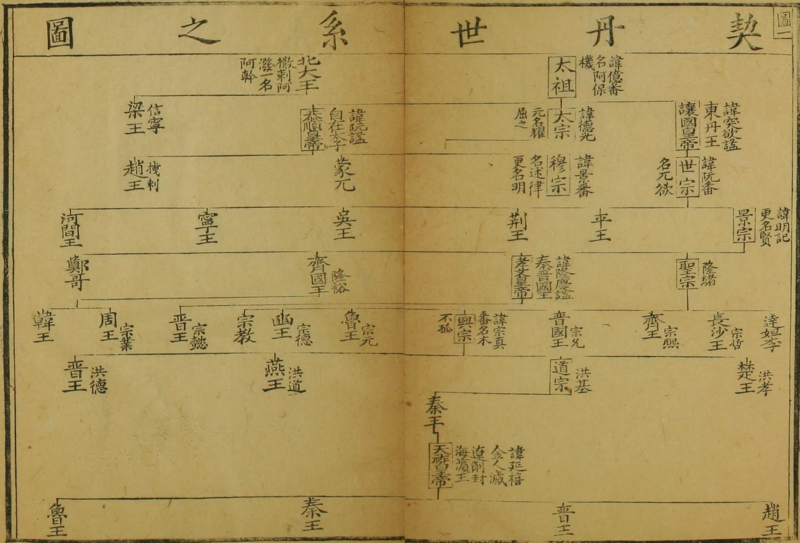 契丹世系之圖
圖一
太祖
諱億番
名阿保
機
北大王
撒剌阿
潑一名
阿幹
東丹王
讓國皇帝
諱突欲謚
太宗
諱德光
元名耀
屈之
諱阮謚
自在太子
恭順皇帝
信寧
梁王
諱阮番
世宗
名兀欲
諱景番
穆宗
名述律
更名明
蒙兀
機剌
趙王
諱明記
更名賢
景宗
平王
荆王
吳王
寧王
河間王
隆緒
聖宗
諱隆慶謚
秦晉國王
孝文皇帝
隆裕
齊國王
鄭哥
達妲李
宗哲
長沙王
宗熙
齊王
宗允
晉國王
諱宗真
番名木
不孤
興宗
宗元
魯王
宗德
幽王
宗教
宗懿
晉王
宗業
周王
韓王
洪孝
楚王
洪基
道宗
洪道
燕王
洪德
晉王
秦王
諱延禧
金人滅
遼削封
海濱王
天祚皇帝
趙王
晉王
秦王
魯王